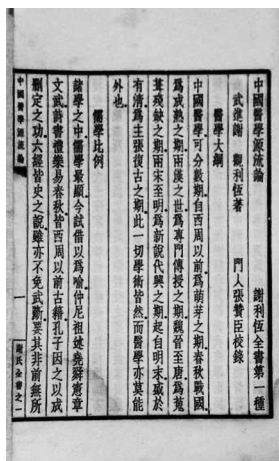 中國醫學源流論　謝利恆全書第一種
武進謝　觀利恆著　門人張贊臣校錄
醫學大綱
中國醫學可分數期自西周以前為萌芽之期春秋戰國
為成熟之期兩漢之世為專門傳授之期魏晉至唐為蒐
葺殘缺之期兩宋至明為新說代興之期起自明末盛於
有清為主張復古之期此一切學術皆然而醫學亦莫能
外也
儒學比例
諸學之中儒學最顯今試借以為喻仲尼祖述堯舜憲章
文武詩書禮樂易春秋皆西周以前古籍孔子因之以成
刪定之功六經皆史之說雖亦不免武斷要其非前無所
中國醫學源流論
一
謝氏全書之一